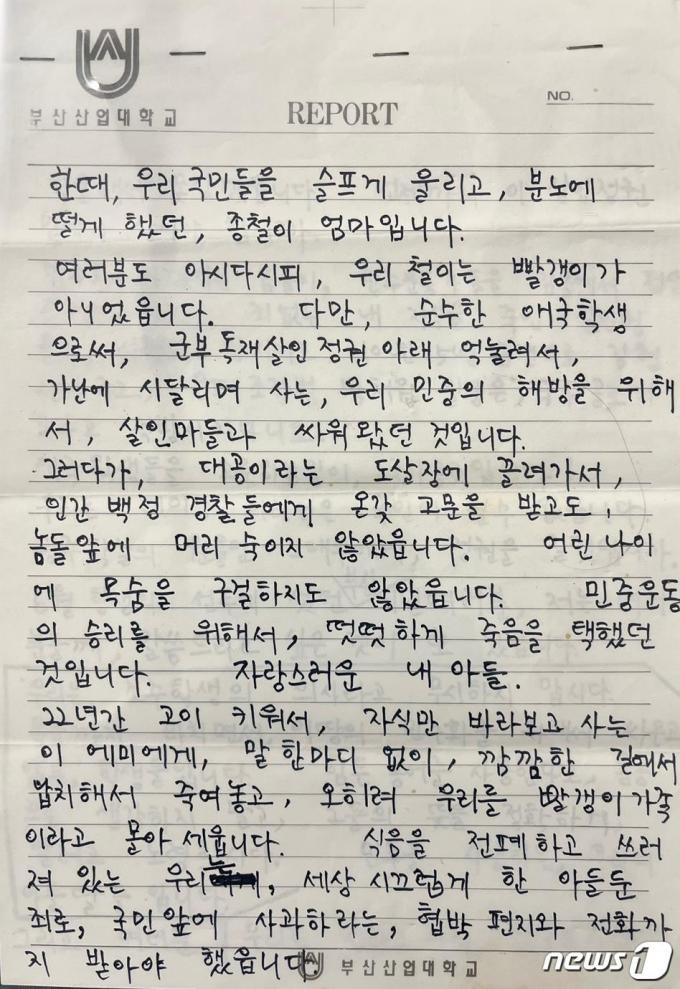 부산산업대학교
REPORT
NO.
한때, 우리 국민들을 슬프게 울리고, 분노에
떨게 했던, 종철이 엄마입니다.
여러분도 아시다시피, 우리 철이는 빨갱이가
아니었읍니다. 다만, 순수한 애국학생
으로써, 군부독재살인정권 아래 억눌려서,
가난에 시달리며 사는, 우리 민중의 해방을 위해
서, 살인마들과 싸워 왔던 것입니다.
그러다가, 대공이라는 도살장에 끌려가서,
인간 백정 경찰들에게 온갖 고문을 받고도,
놈들앞에 머리 숙이지 않았읍니다. 어린 나이
에 목숨을 구걸하지도 않았읍니다. 민중운동
의 승리를 위해서, 떳떳하게 죽음을 택했던
것입니다. 자랑스러운 내 아들.
22년간 고이 키워서, 자식만 바라보고 사는
이 에미에게, 말 한마디 없이, 깜깜한 길에서
납치해서 죽여놓고, 오히려 우리를 빨갱이가족
이라고 몰아 세웁니다. 식음을 전폐하고 쓰러
져 있는 우리는, 세상 시끄럽게 한 아들둔
죄로, 국민앞에 사과하라는, 협박 편지와 전화까
지 받아야 했읍니다.
부산산업대학교
news1